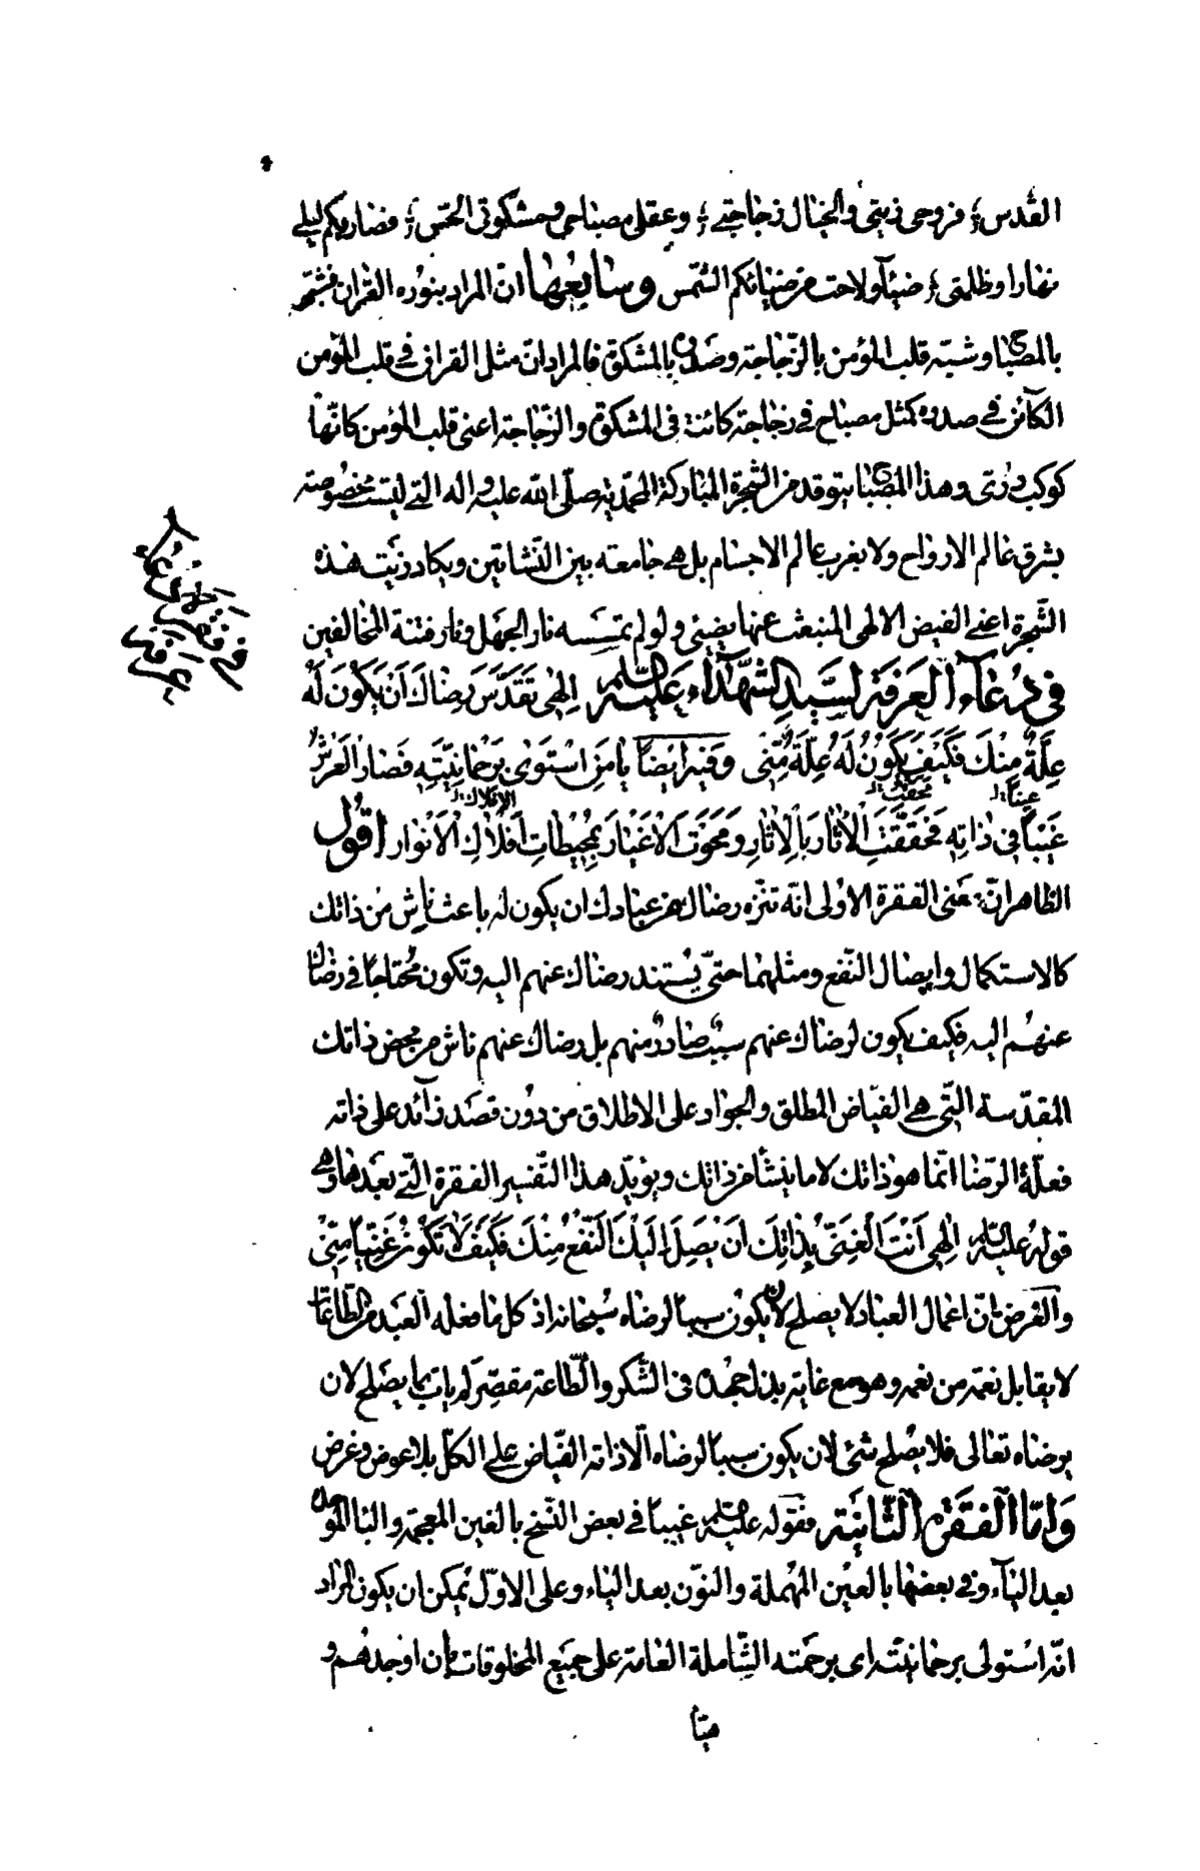 القدس ؛ فروحی زیتی والخیال زجاجتے ؛ وعقلی مصباحی ومشکوتی الحسّ ؛ فصار بکم لیلے
نهارا وظلمتی ؛ ضیئاً ولاحت من ضیائکم الشمس وسابعها انّ المراد بنوره القران فشبّه
بالمصباح وشبّه قلب المؤمن بالزّجاجة وصدره بالمشکوة فالمراد انّ مثل القران فے قلب المؤمن
الکآئن فے صدره کمثل مصباح فے زجاجة کائنة فی المشکوة والزّجاجة اعنی قلب المؤمن کانّها
کوکب درّی وهذا المصباح یتوقد من الشجرة المبارکة المحمّدیة صلّی الله علیه واله التے لیست مخصوصة
بشرق عالم الارواح ولا بغرب عالم الاجسام بل هے جامعة بین النّشأتین ویکاد زیت هذه
الشّجرة اعنے الفیض الالهی المنبعث عنها یضیئ ولو لم تمسسه نار الجهل ونار فتنة المخالفین
فی دُعآء العَرفَة لسَیّدِ الشّهدآء عَلَیْه السَّلم اِلهِی تَقَدَّسَ رِضاكَ اَنْ یَکُونَ لَهُ
عِلَّةٌ مِنْكَ فَکَیْفَ یَکُونُ لَهُ عِلَّةٌ مِنّی وفیه ایضاً یا مَنِ اسْتَوَی بِرَحْمانِیَّتِهِ فَصارَ العَرْشُ
غَیْباً فی ذاتِهِ مَحَقْتَ الْاٰثارَ بِالْاٰثارِ وَمَحَوْتَ الْاَغْیارَ بِمُحِیطاتِ اَفْلاكِ الْاَنْوارِ اقول
الظاهر انّ معنی الفقرة الاولی انّه تنزّه رضاك من عبادك ان یکون له باعث ناشٍ من ذاتك
کالاستکمال وایصال النّفع ومثلهما حتّی یستند رضاك عنهم الیه وتکون مُحتاجاً فے رضاك
عنهُم الیه فکیف یکون لرضاك عنهم سببٌ صادرٌ منهم بل رضاك عنهم ناش من محض ذاتك
المقدّسة الّتی هے الفیّاض المطلق والجواد علی الاطلاق من دوُن قصد زآئد علی ذاته
فعلّة الرّضا انّما هو ذاتك لا ما ینشأ من ذاتك ویؤیّد هذا التّفسیر الفقرة الّتے بعدها وهے
قوله علیه السّلم اِلهِی اَنْتَ الْغَنِیُّ بِذاتِكَ اَنْ یَصِلَ اِلَیْكَ النَّفْعُ مِنْكَ فَکَیْفَ لا تَکُونُ غَنِیّاً مِنّی
والغرض انّ اعمال العباد لا یصلح لان یکون سببا لرضاه سُبحانه اذ کل ما فعله العبد من الطّاعات
لا یقابل نعمة من نعمه وهو مع غایة بذل جهده فی الشّکر والطّاعة مقصّر لم یات بما یصلح لان
یرضاه تعالی فلا یصلح شئ لان یکون سببا لرضاه الّا ذاته الفیّاض علے الکلّ بلا عوض وغرض
وَامّا الفقرة الثّانیة فقوله علیه السّلم غیبا فے بعض النّسخ بالغین المعجمة والباء الموحّدة
بعد الیآء وفے بعضها بالعین المهملة والنّون بعد الیاء وعلی الاوّل یُمکن ان یکون المراد
انّه استولی برحمانیّته ای برحمته الشّاملة العامة علی جمیع المخلوقات بان اوجدهم و
عینا خ
محقت خ
الافلاك خ